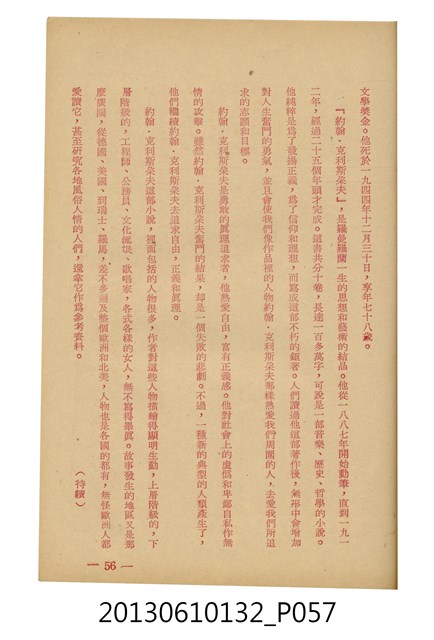 文學獎金。他死於一九四四年十二月三十日，享年七十八歲。
『約翰・克利斯朵夫』，是羅曼羅蘭一生的思想和藝術的結晶。他從一八八七年開始動筆，直到一九一
二年，經過二十五個年頭才完成。這書共分十卷，長達一百多萬字，可說是一部音樂、歷史、哲學的小說。
他純粹是爲了發揚正義，爲了信仰和理想，而寫成這部不朽的鉅著。人們讀過他這部著作後，無形中會增加
對人生奮鬥的勇氣，並且會使我們像作品裡的人物約翰・克利斯朵夫那樣熱愛我們周圍的人，去愛我們所追
求的志願和目標。
約翰・克利斯朵夫是勇敢的眞理追求者，他熱愛自由，富有正義感。他對社會上的虛僞和卑鄙自私作無
情的攻擊。雖然約翰・克利斯朵夫奮鬥的結果，却是一個失敗的悲劇。不過，一種新的典型的人類產生了，
他們繼續約翰・克利斯朵夫去追求自由，正義和眞理。
約翰・克利斯朵夫這部小說，裡面包括的人物很多，作者對這些人物描繪得顯明生動，上層階級的，下
層階級的，工程師、公務員、文化流氓、歌唱家，各式各樣的女人，無不寫得畢眞。故事發生的地區又是那
麼廣闊，從德國、美國、到瑞士、羅馬，差不多遍及整個歐洲和北美，人物也是各國的都有，無怪歐洲人都
愛讀它，甚至研究各地風俗人情的人們，還拿它作爲參考資料。
（待續）
— 56 —
20130610132_P057